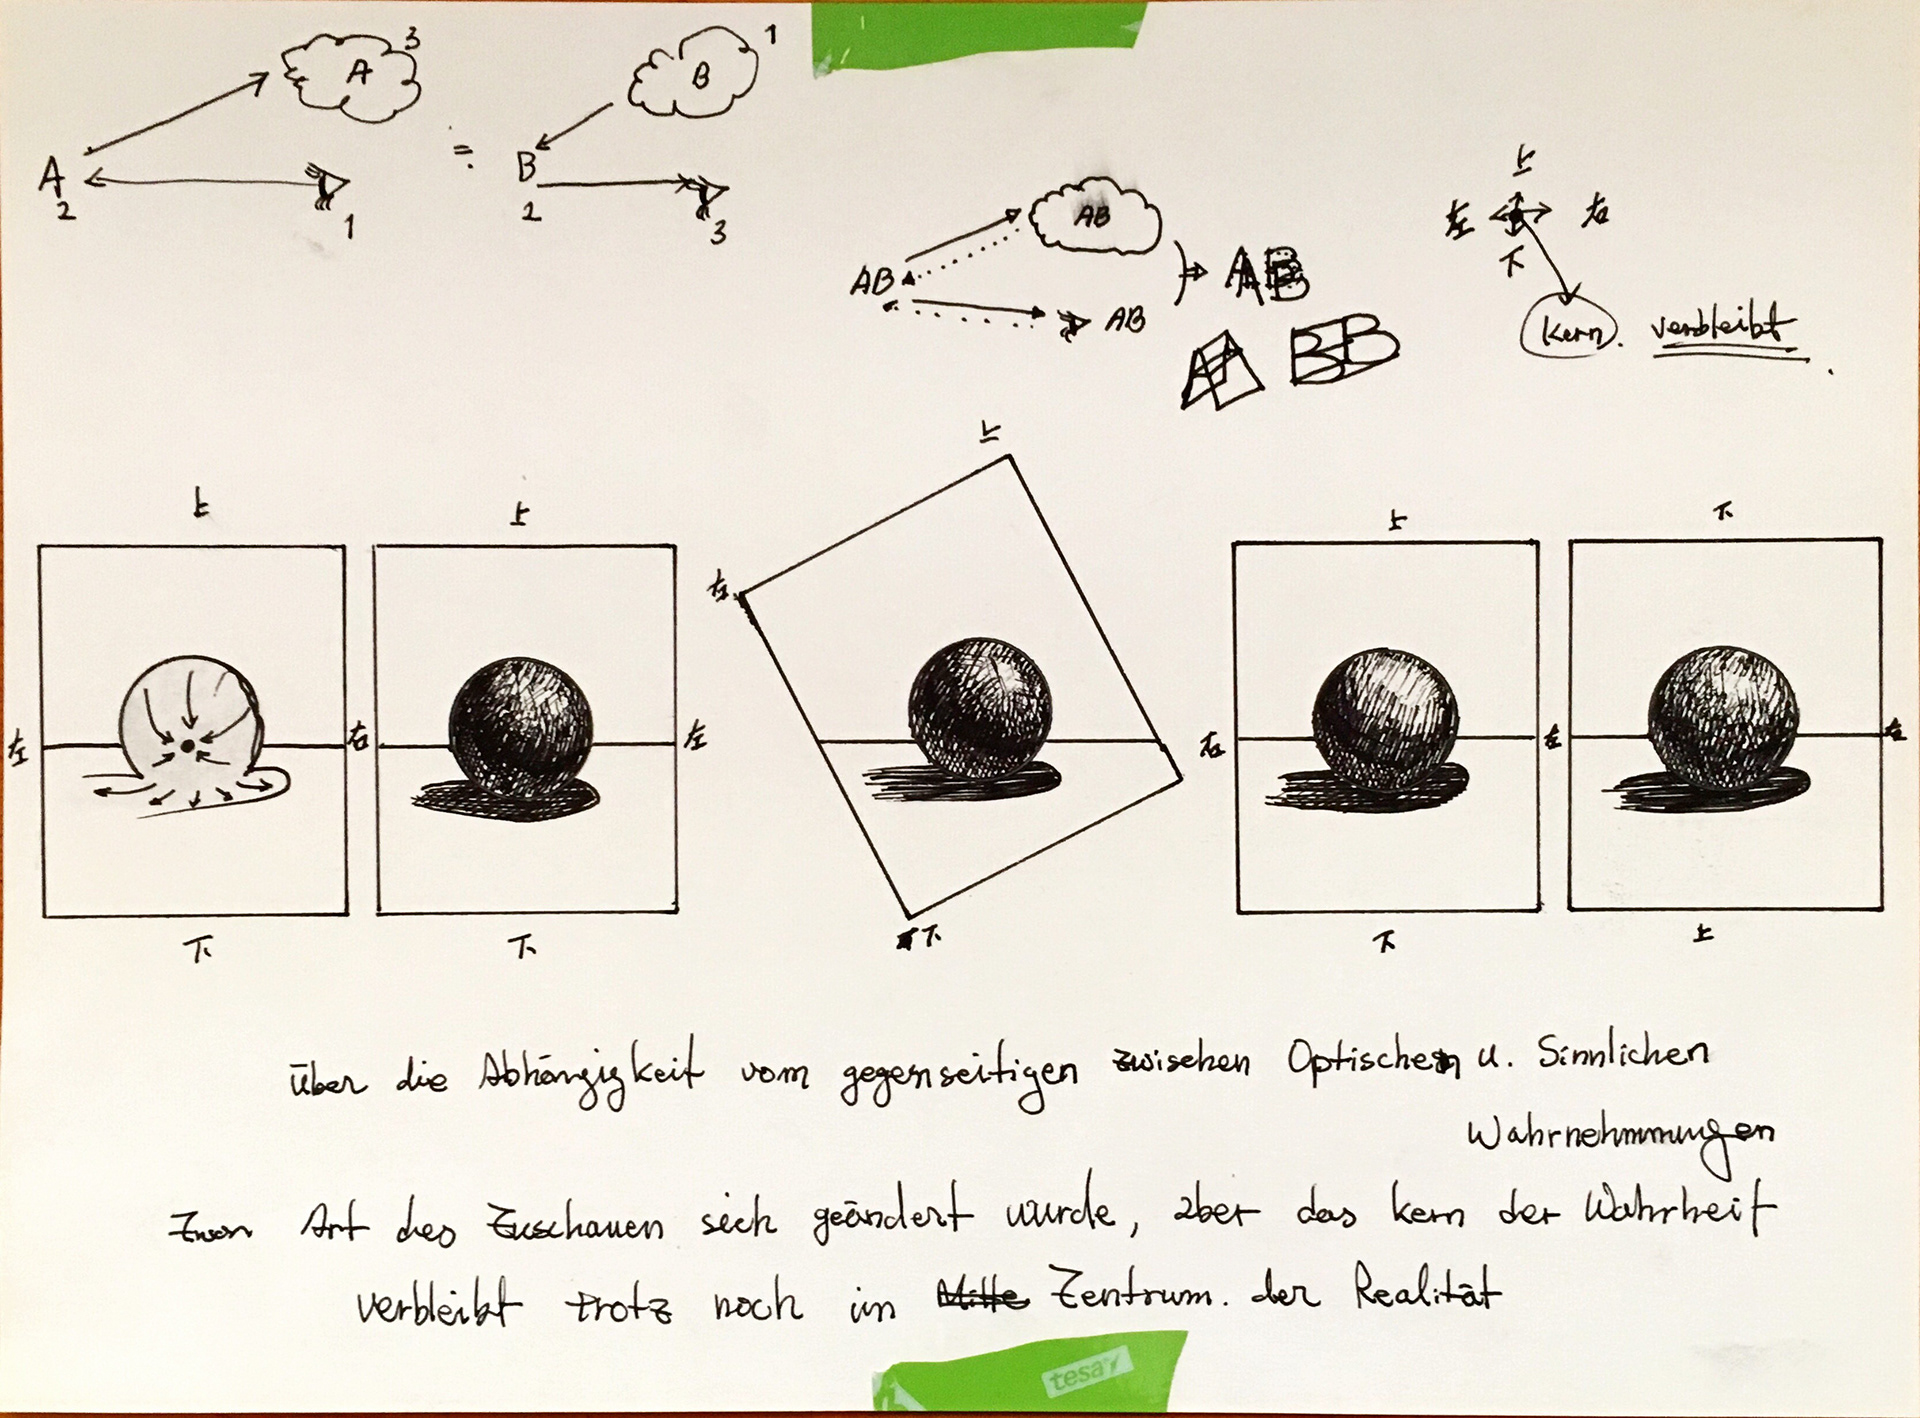 A 3
B 1
A = B
2 1 2 3
上
左 右
下
AB
AB AB
AB
A A B B
kern. verbleibt
上 上 上 上 下
左
左 右 左 右 左
下 下 下 下 上
über die Abhängigkeit vom gegenseitigen zwischen Optischen u. Sinnlichen
Wahrnehmmungen
Zwar Art des Zuschauen sich geändert wurde, aber das kern der Wahrheit
verbleibt trotz noch im Mitte Zentrum. der Realität
tesa